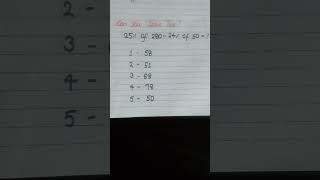 Can You Solve This?
25% of 280 - 24% of 50 = ?
1 - 58
2 - 51
3 - 68
4 - 78
5 - 50